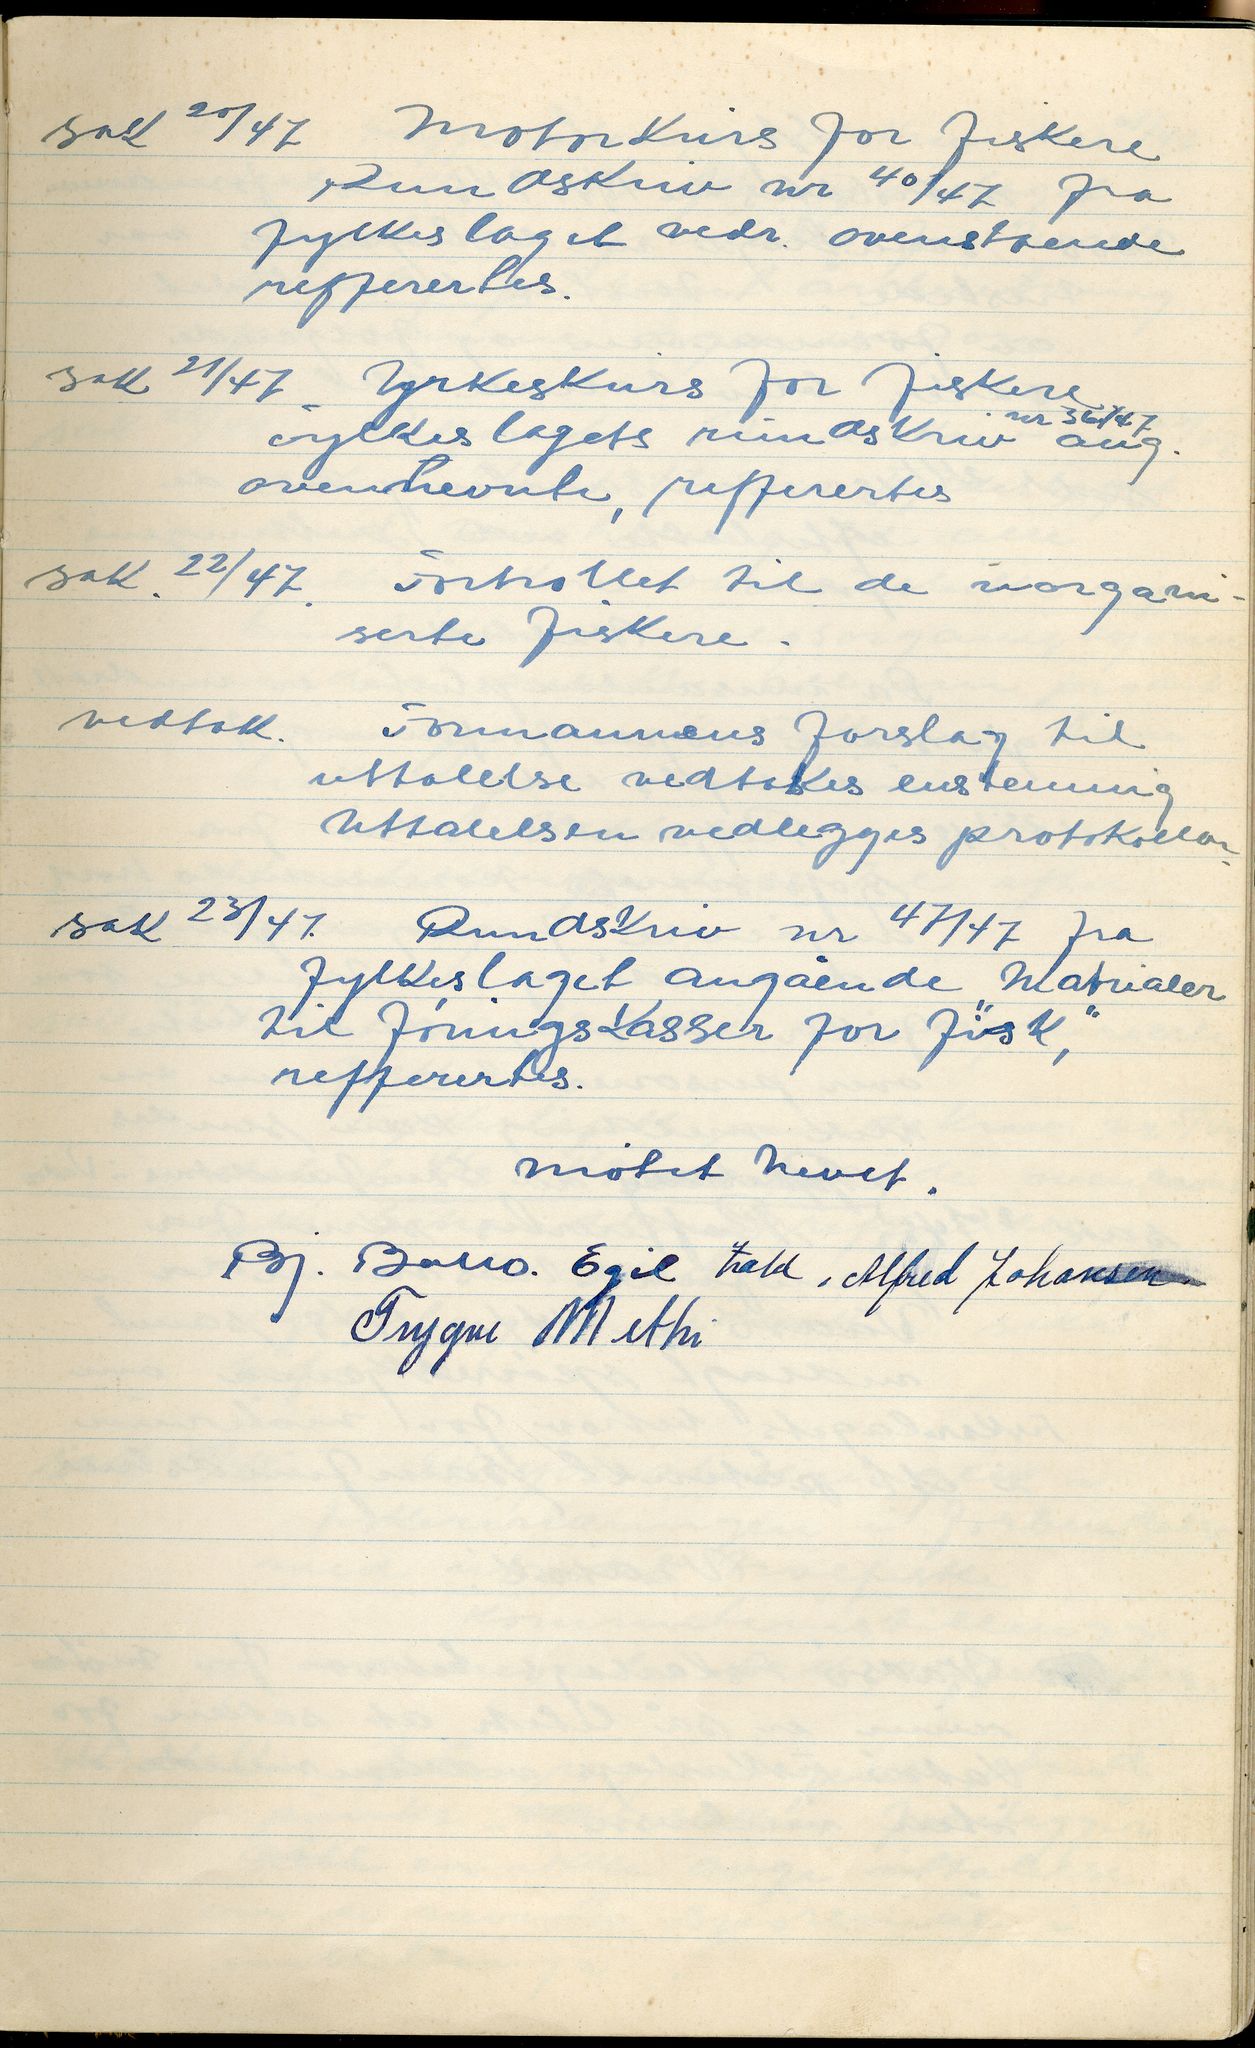 sak 20/47 Motorkurs for fiskere
Rundskriv nr 40/47 fra
fylkeslaget vedr. ovenstående
refferertes.
sak 21/47. Yrkeskurs for fiskere
Fylkeslagets rundskriv nr 36/47 ang.
ovennevnte, refferertes
sak. 22/47. Forhollet til de uorgani-
serte fiskere.
vedtak. Formannens forslag til
uttalelse vedtokes enstemmig
Uttalelsen vedlegges protokollen.
sak 23/47. Rundskriv nr 47/47 fra
fylkeslaget angående "Matrialer
til föringskasser for fisk",
refferertes.
Mötet hevet.
Bj. Egil Alfred Johansen
Trygve